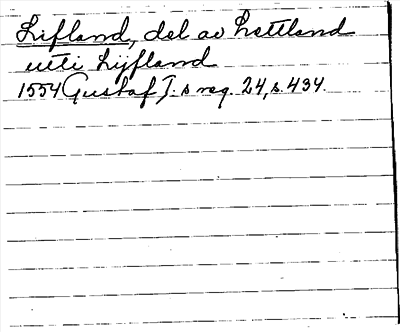 Lifland, del av Lettland
utti Lijfland
1554 Gustaf I.s reg. 24, s. 434.